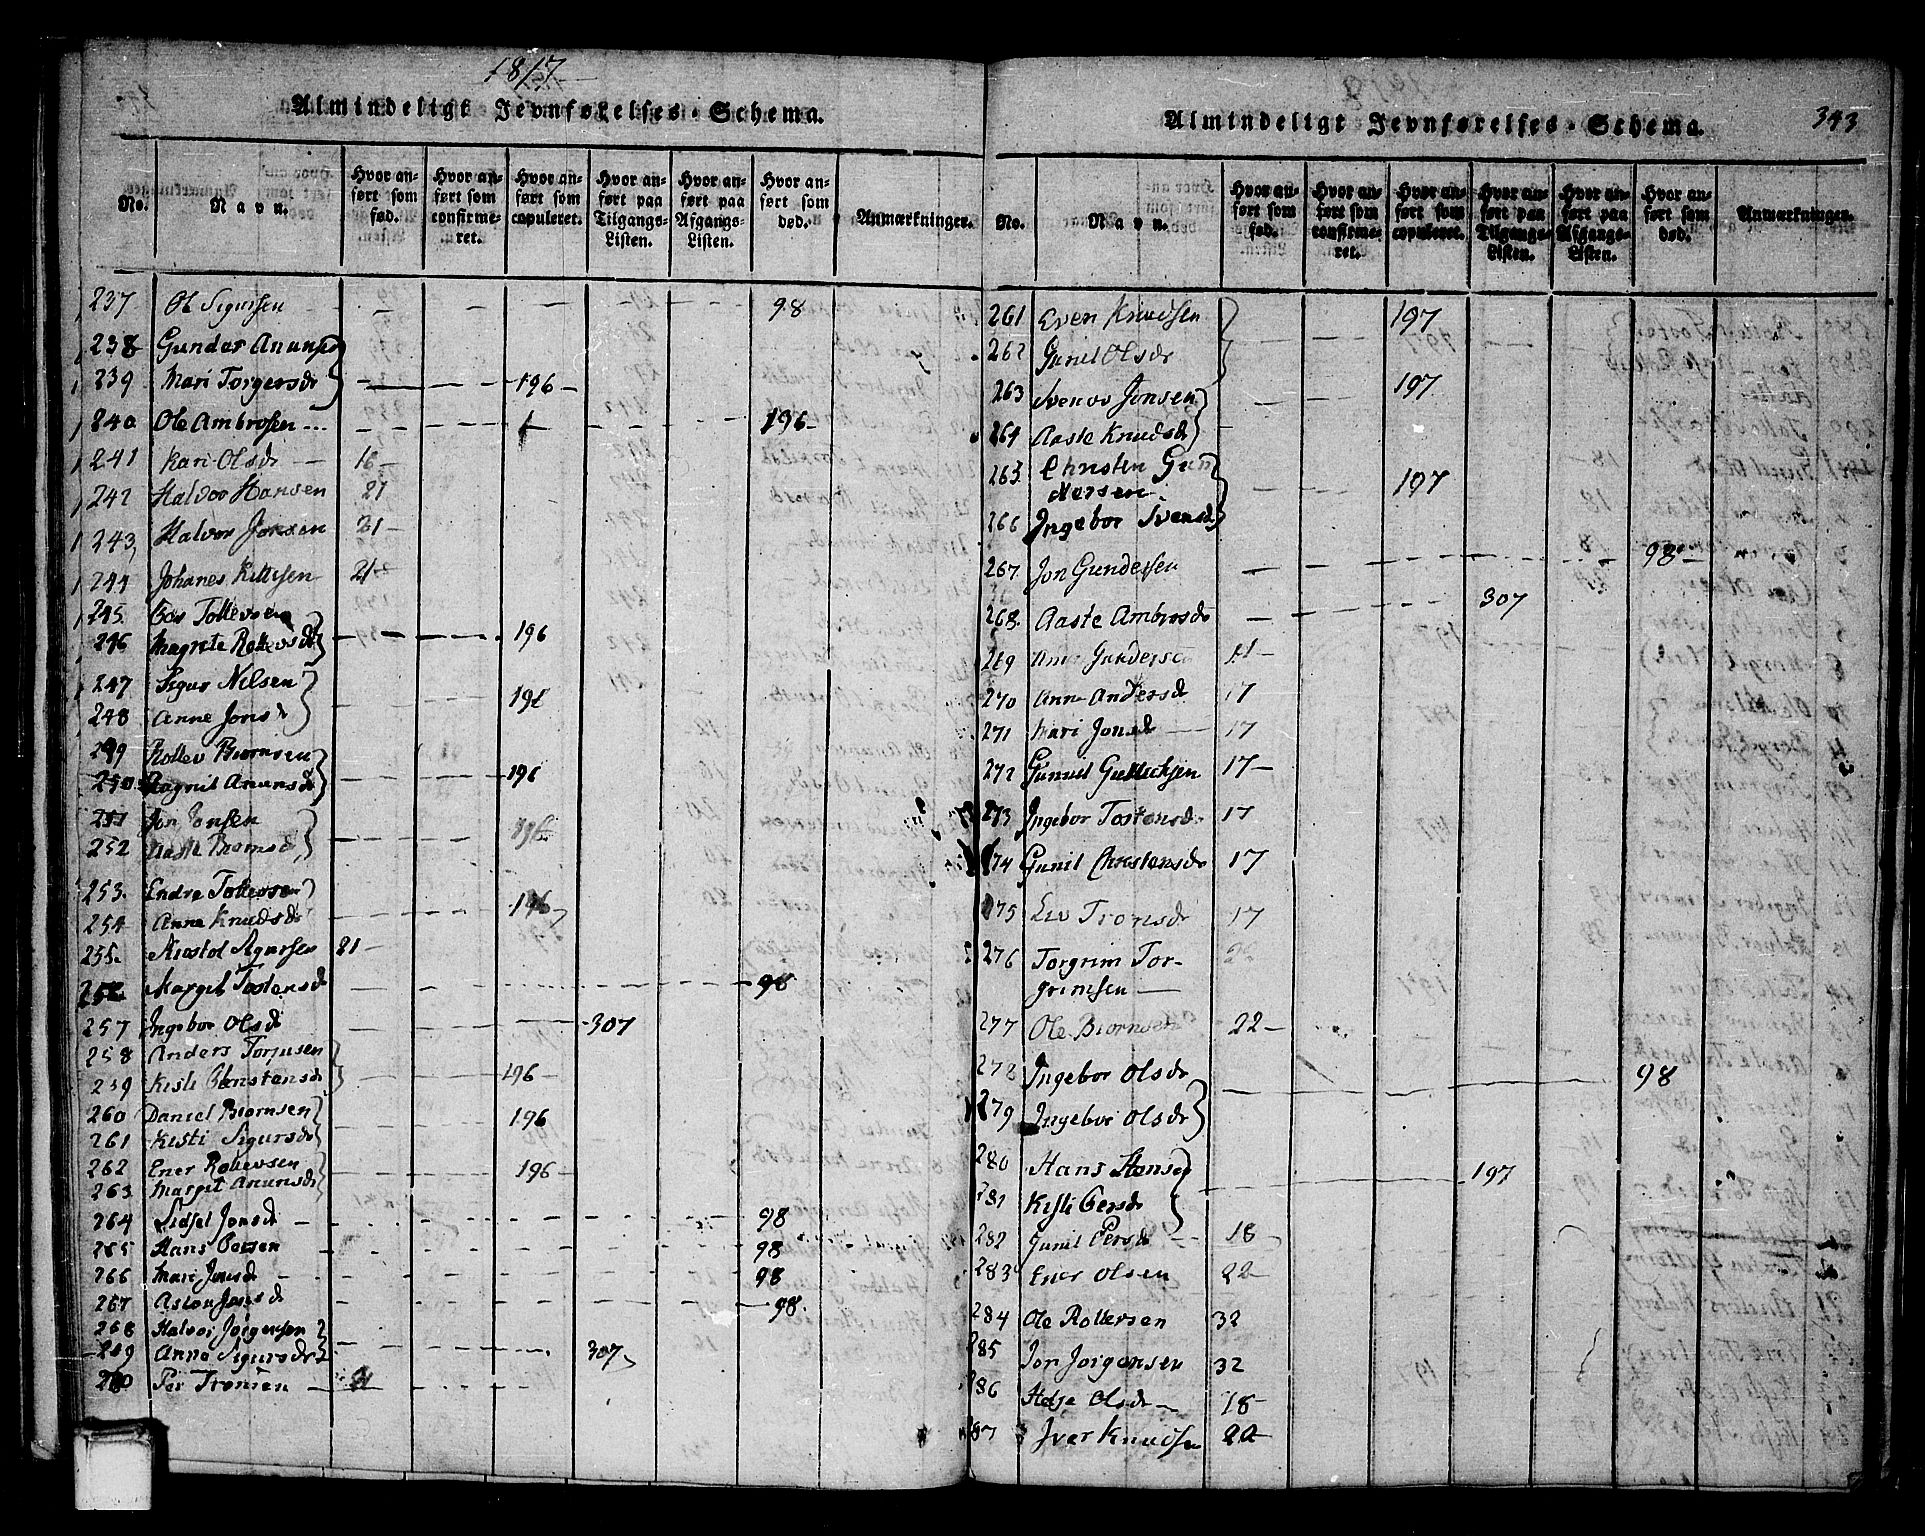 1817
Almindeligt Jevnførelses-Schema.
No.
Navn.
Hvor anført som fød.
Hvor anført som confirmeret.
Hvor anført som copuleret.
Hvor anført paa Tilgangs-Listen.
Hvor anført paa Afgangs-Listen.
Hvor anført som død.
Anmærkninger.
237 Ol Sigursen 98
238 Gunder Anunse
239 Mari Torgersdr 196
240 Ole Ambrosen 196
241 Kari Olsdr 16
242 Halvor Hansen 21
243 Halvor Jonsen 21
244 Johanes Kittisen 21
245. Tollevsen
246 Magrete Rollevsdr 196
247 Sigur Nilsen
248 Anne Jonsd 196
249 Rollev Biørnsen
250 Anunsdr 196
251 Jon Jonsen
252 Aaste Thomsd 196
253. Endre Tollevsen
254 Anne Knudsdr 196
255. Sigursen 21
256 Margit Tostensd 98
257 Ingebor Olsd 307
258 Anders Torjusen
259 Kisti 196
260 Daniel Biørnsen
261 Kisti Sigursdr 196
262 Ener Rollevsen
263 Margit Anunsdr 196
264 Sidsel Jonsdr 98
265 Hans Persen 98
266 Mari Jonsd 98
267 Aslou Jonsd 98.
268 Halvor Jørgensen
269 Anne Sigursdr 307
270 Per Tronsen 21
Almindeligt Jevnførelses-Schema.
343
No.
Navn.
Hvor anført som fød.
Hvor anført som confirmeret.
Hvor anført som copuleret.
Hvor anført paa Tilgangs-Listen.
Hvor anført paa Afgangs-Listen.
Hvor anført som død.
Anmærkninger.
261 Even Knudsen 197
262 Gunil Olsdr
263 Jonsen 197
264 Aaste Knudsd
265. Christen Gun
dersen 197
266 Ingebor Svensd
267. Jon Gundersen 98
268. Aaste Ambrosdr 307
269 Gunders
270 Anne Andersdr 17
271 Kari Jonsd 17
272 Gunuil Gullichsen 17
273 Ingebor Tostensd 17
274 Gunil Christensdr 17
275 Liv Tronsdr 17
276 Torgrim Tor-
grimsen
277 Ole Biørnsen 22
278 Ingebor Olsdr 98
279 Ingebor Olsdr
280 Hans Hanse 197
281 Kisti Persdr
282 Gunil Persdr 18
283 Ener Olsen 22
284 Ole Rollevsen 32
285 Jon Jorgensen 32
286 Helje Olsdr 18
287 Iver Knudsen 22